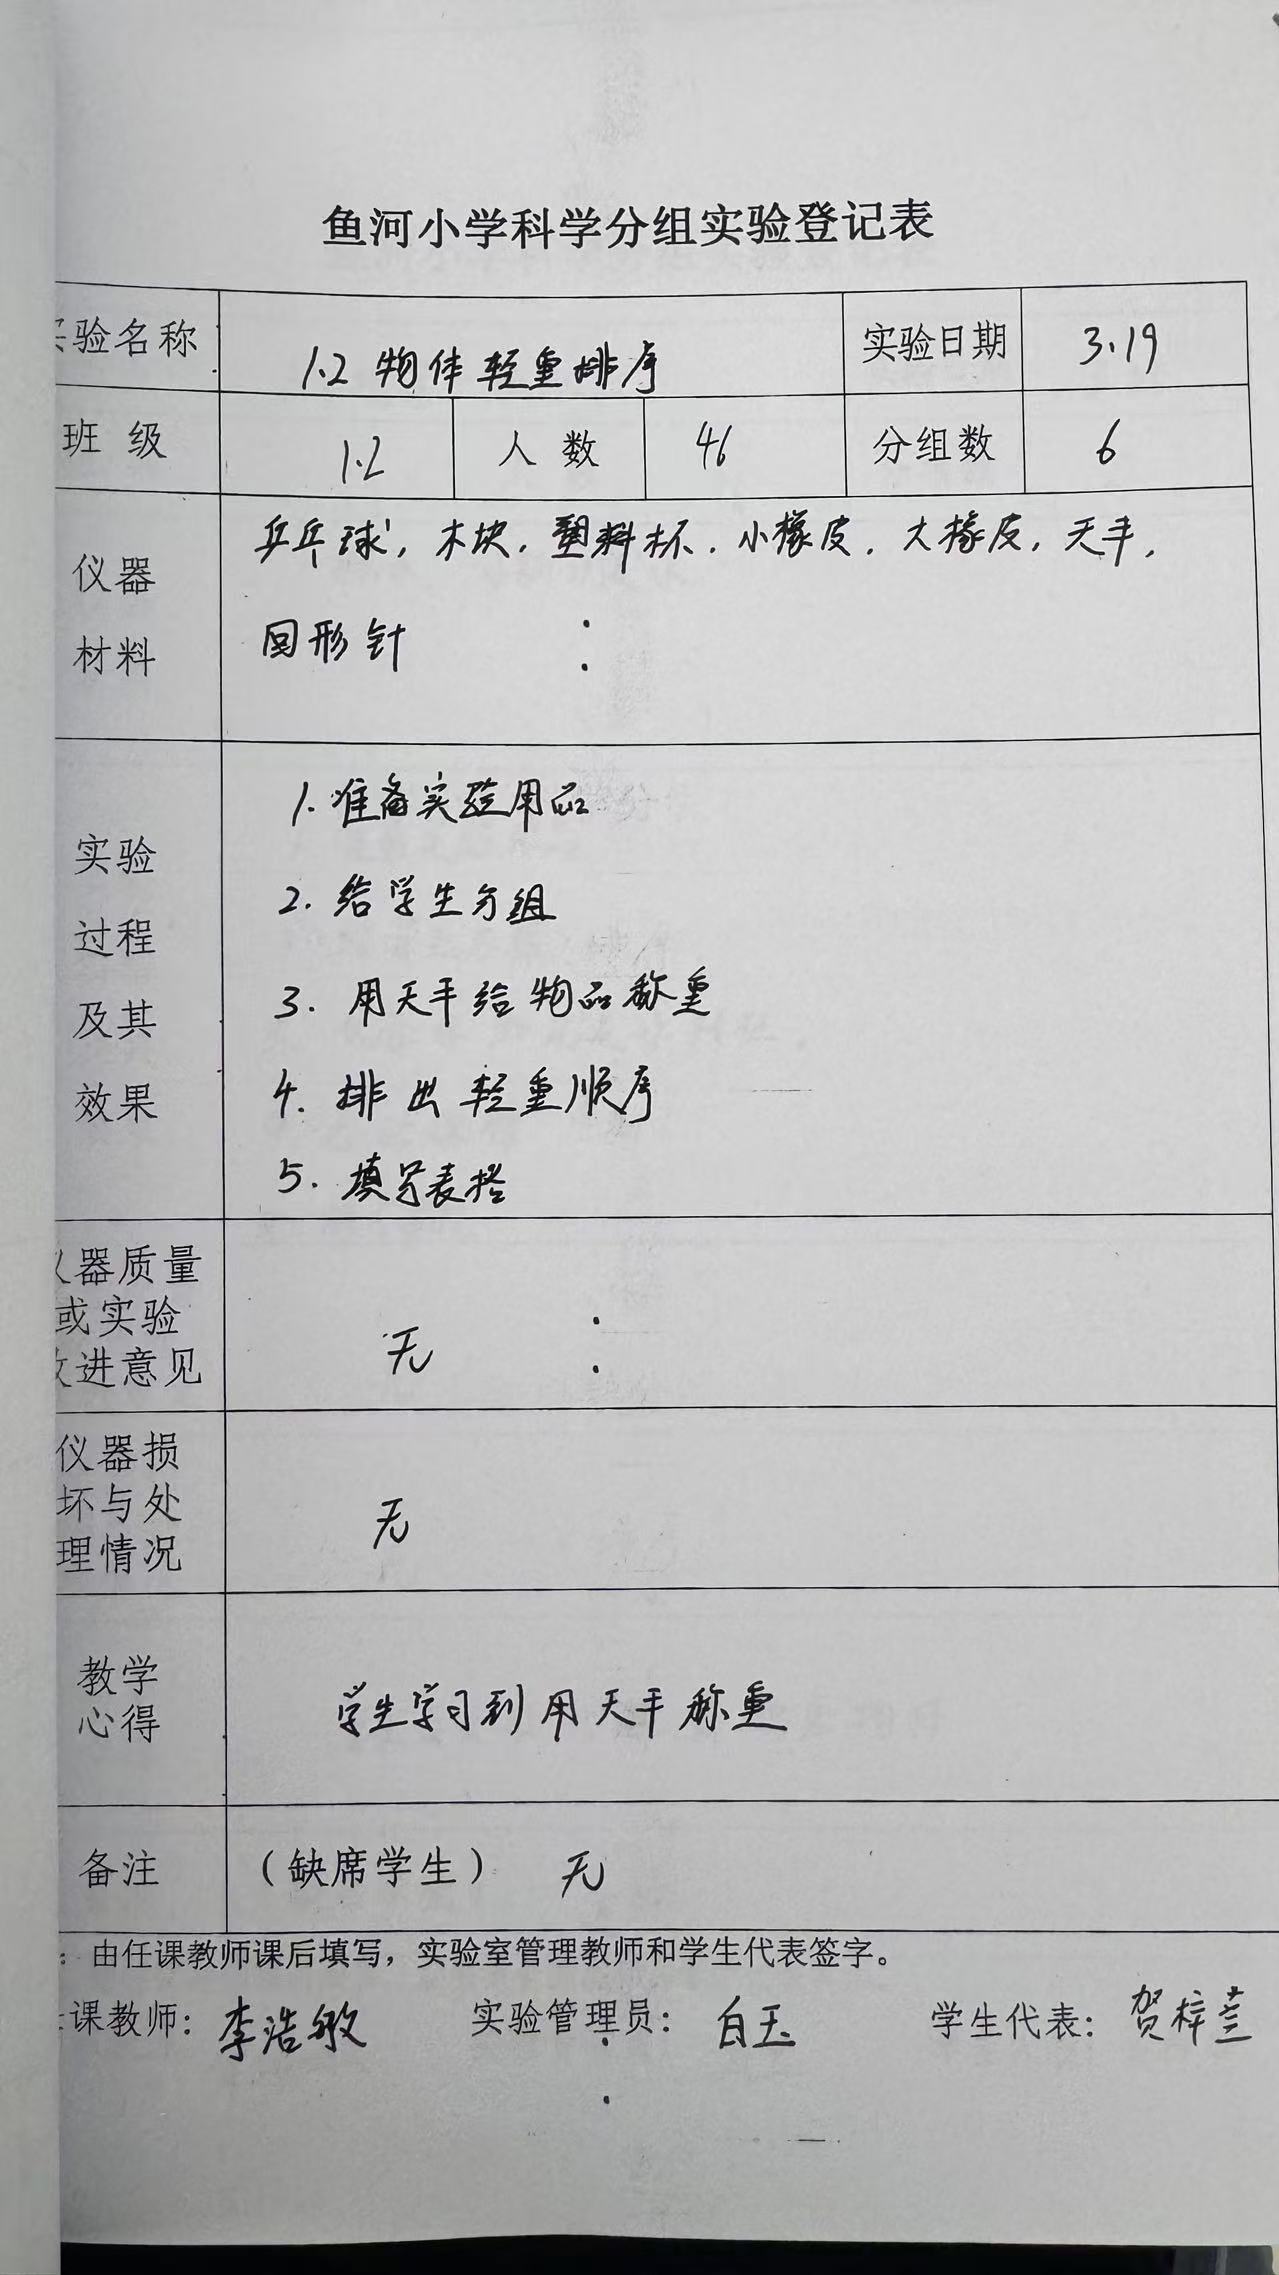 鱼河小学科学分组实验登记表
实验名称 1.2 物体轻重排序 实验日期 3.19
班 级 1.2 人 数 46 分组数 6
仪器
材料
乒乓球，木块，塑料杯，小橡皮，大橡皮，天平，
回形针
实验
过程
及其
效果
1. 准备实验用品
2. 给学生分组
3. 用天平给物品称重
4. 排出轻重顺序
5. 填写表格
仪器质量
或实验
改进意见
无
仪器损
坏与处
理情况
无
教学
心得
学生学习到用天平称重
备注 （缺席学生） 无
：由任课教师课后填写，实验室管理教师和学生代表签字。
任课教师：李浩敏 实验管理员：白玉 学生代表：贺梓萱